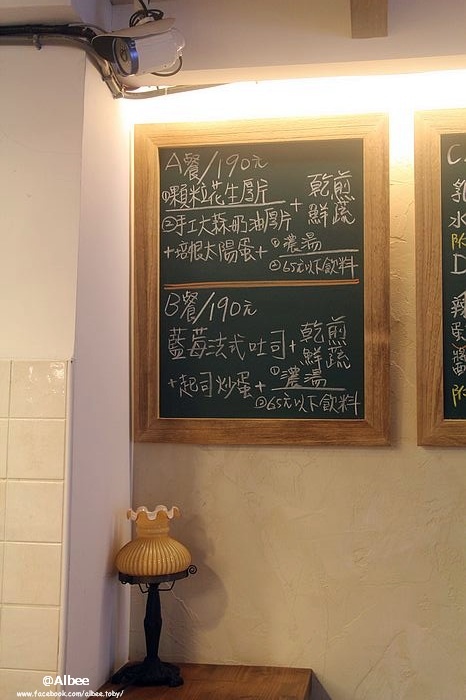 A餐/190元
①顆粒花生厚片
②手工大蒜奶油厚片
+培根太陽蛋+
+乾煎鮮蔬
①濃湯
②65元以下飲料
B餐/190元
藍莓法式吐司+乾煎鮮蔬
+起司炒蛋+
①濃湯
②65元以下飲料
C.
乳
水
附
D
辣
蛋
醬
附
@Albee
www.facebook.com/albee.toby/